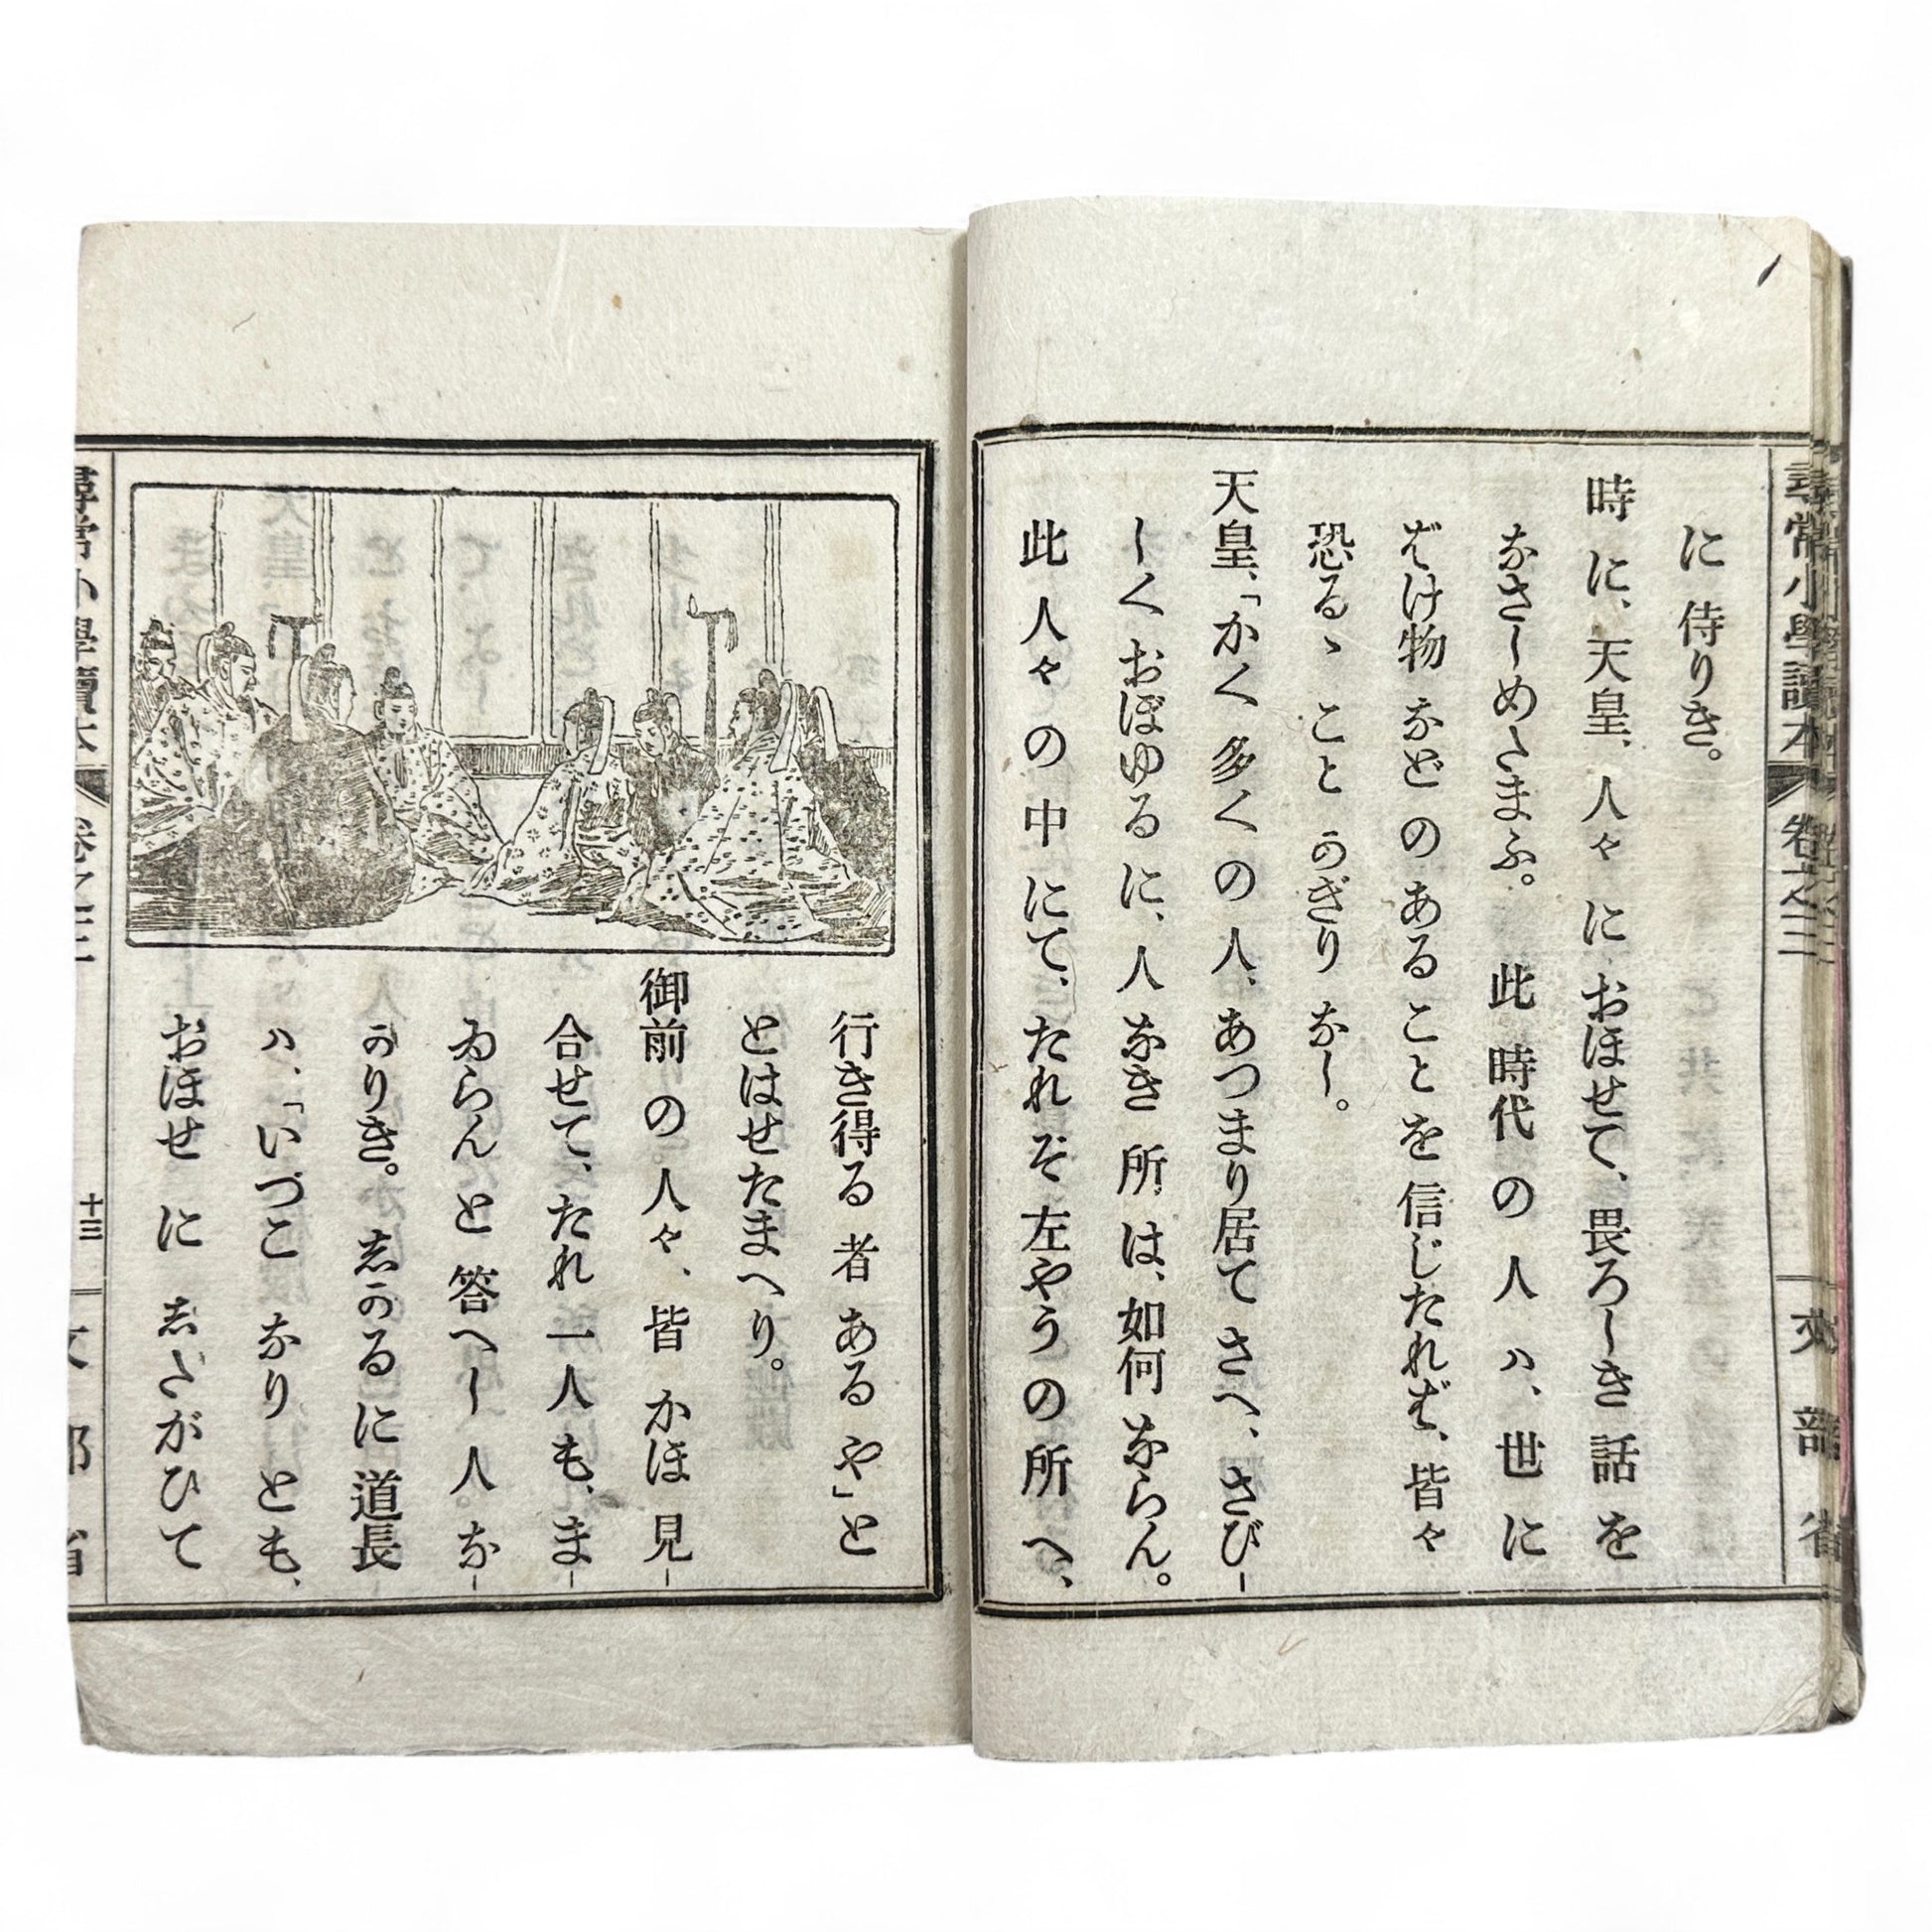 尋常小學讀本 卷之三 文部省
に 侍りき。
時 に、天皇、人々 に おほせて、畏ろしき 話 を
なさしめたまふ。 此 時代 の 人 ハ、世 に
ばけ物 など の ある こと を 信じたれば、皆々
恐るゝ こと かぎり なし。
天皇、「かく 多く の 人、あつまり居て さへ、さび-
しく おぼゆる に、人 なき 所 は、如何 ならん。
此 人々 の 中 にて、たれ ぞ 左やう の 所 へ、
行き得る 者 ある や」と
とはせたまへり。
御前 の 人々、皆 かほ 見-
合せて、たれ 一人 も、ま-
ゐらん と 答へし 人 な-
かりき。 しかる に 道長
ハ、「いづこ なり とも、
おほせ に したがひて
尋常小學讀本 卷之三 十三 文部省